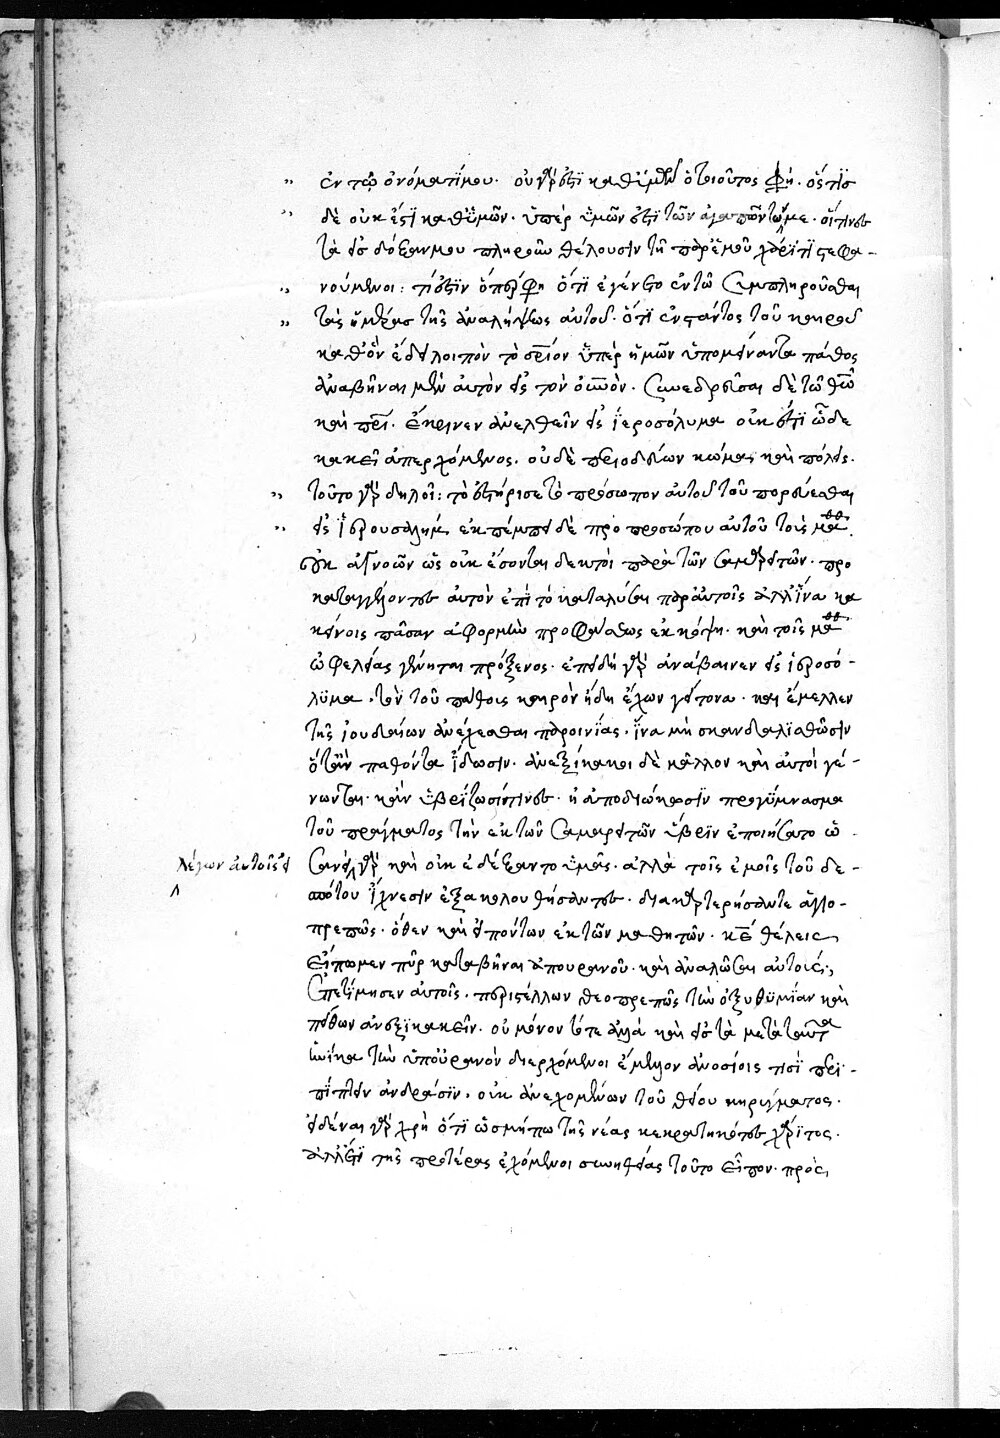 ἐν τῷ ὀνόματί μου· οὐ γάρ ἐστι καθ' ὑμῶν ὁ τοιοῦτος φη· ὅστις
δὲ οὐκ ἔστι καθ' ὑμῶν· ὑπὲρ ὑμῶν ἐστι τῶν ἀγαπώντων με· οἵτινες
τὰ εἰς δόξαν μου πληροῦν θέλουσιν τῇ παρ' ἐμοῦ χάριτι στεφα-
νούμενοι: τί ἐστιν ὅπερ ἔφη ὅτι ἐγένετο ἐν τῷ συμπληροῦσθαι
τὰς ἡμέρας τῆς ἀναλήψεως αὐτοῦ· ὅτι ἐνστάντος τοῦ καιροῦ
καθ' ὃν ἔδει λοιπὸν τὸ σριον ὑπὲρ ἡμῶν ὑπομείναντα πάθος
ἀναβῆναι μὲν αὐτὸν εἰς τὸν οὐνον· συνεδρεῦσαι δὲ τῷ θῶ
καὶ πρι· ἔκρινεν ἀνελθεῖν εἰς ἱεροσόλυμα οὐκ ἔτι ὧδε
κἀκεῖ ἀπερχόμενος· οὐδὲ περιοδεύων κώμας καὶ πόλεις·
τοῦτο γὰρ δηλοῖ: τὸ ἐστήρισε τὸ πρόσωπον αὐτοῦ τοῦ πορεύεσθαι
εἰς ἱερουσαλήμ· ἐκπέμπει δὲ πρὸ προσώπου αὐτοῦ τοὺς μαθθ·
οὐκ ἀγνοῶν ὡς οὐκ ἔσονται δεκτοὶ παρὰ τῶν σαμαρειτῶν· προ
καταγγέλοντες αὐτὸν ἐπὶ τὸ καταλῦσαι παρ' αὐτοῖς ἀλλ' ἵνα κα
κείνοις πᾶσαν ἀφορμὴν προφάσεως ἐκκόψῃ· καὶ τοῖς μαθθ
ὠφελείας γένηται πρόξενος· ἐπειδὴ γὰρ ἀνάβαινεν εἰς ἱεροσό-
λυμα, τὸν τοῦ πάθους καιρὸν ἤδη ἔχων γείτονα· καὶ ἔμελλεν
τῆς ἰουδαίων ἀνέχεσθαι παροινίας, ἵνα μὴ σκανδαλισθῶσιν
ὅταν παθόντα ἴδωσιν· ἀνεξίκακοι δὲ μᾶλλον καὶ αὐτοὶ γέ-
νωνται· κἂν ὑβρίζωσί τινες· ἢ ἀποδιώκωσιν προγύμνασμα
τοῦ πράγματος τὴν ἐκ τῶν σαμαρειτῶν ὕβριν ἐποιήσατο ὡ
λέγων αὐτοῖς εἰ
σανεὶ γὰρ καὶ οὐκ ἐδέξαντο ὑμᾶς· ἀλλὰ τοῖς ἐμοῖς τοῦ δε-
σπότου ἴχνεσιν ἐξακολουθήσαντες· διακαρτερήσατε ἁγιο-
πρεπῶς· ὅθεν καὶ εἰπόντων ἐκ τῶν μαθητῶν· κε θέλεις
εἴπωμεν πῦρ καταβῆναι ἀπ' οὐρανοῦ· καὶ ἀναλῶσαι αὐτούς;
ἐπετίμησεν αὐτοῖς· περιστέλλων θεοπρεπῶς τὴν ὀξυθυμίαν καὶ
πείθων ἀνεξικακεῖν· οὐ μόνον τότε ἀλλὰ καὶ εἰς τὰ μετὰ ταῦτα
ἡνίκα τὴν ὑπ' οὐρανὸν διερχόμενοι ἔμελλον ἀνοσίοις τισὶ περι-
πίπτειν ἀνδράσιν· οὐκ ἀνεχομένων τοῦ θείου κηρύγματος·
εἰδέναι γὰρ χρὴ ὅτι ὡς μήπω τῆς νέας κεκρατηκότες χάριτος·
ἀλλ' ἔτι τῆς προτέρας ἐχόμενοι συνηθείας τοῦτο εἶπον· πρὸς